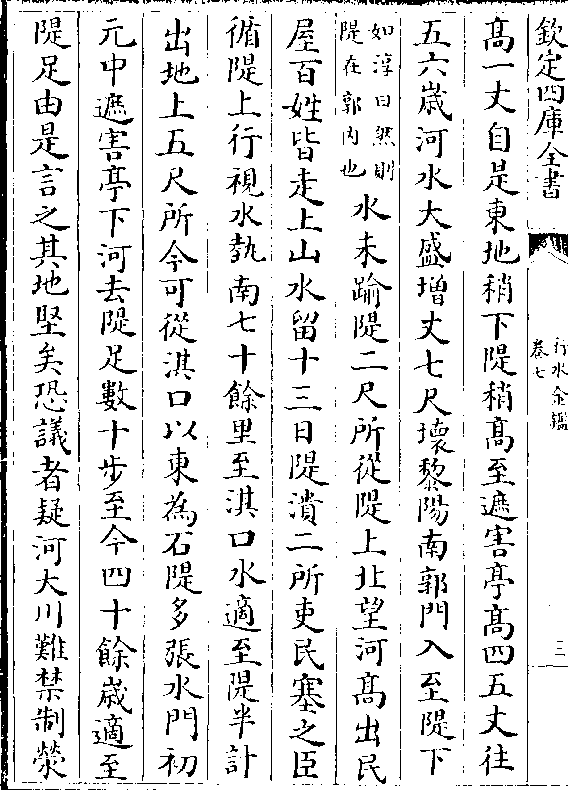 欽定四庫全書
行水金鑑
卷七
三
髙一丈自是東地稍下隄稍髙至遮害亭髙四五丈往
五六歳河水大盛增丈七尺壊黎陽南郭門入至隄下
如淳曰然則
隄在郭内也
水未踰隄二尺所從隄上北望河髙出民
屋百姓皆走上山水留十三日隄潰二所吏民塞之臣
循隄上行視水埶南七十餘里至淇口水適至隄半計
出地上五尺所今可從淇口以東為石隄多張水門初
元中遮害亭下河去隄足數十步至今四十餘歳適至
隄足由是言之其地堅矣恐議者疑河大川難禁制滎